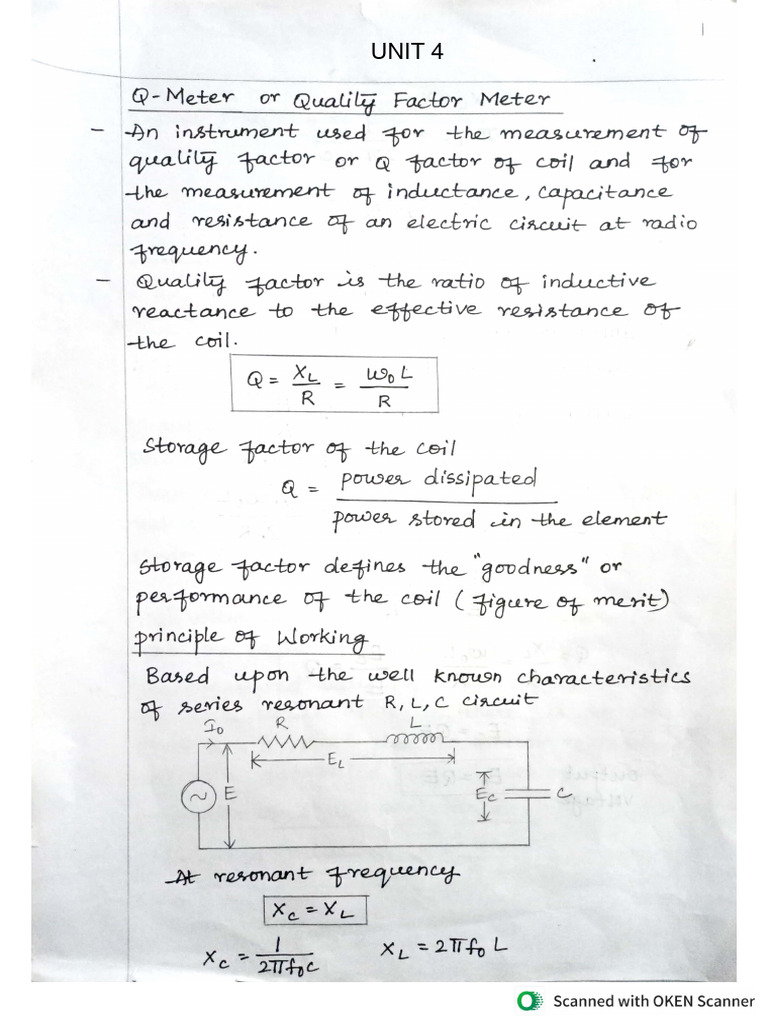 1
UNIT 4
Q-Meter or Quality Factor Meter
- An instrument used for the measurement of
quality factor or Q factor of coil and for
the measurement of inductance, capacitance
and resistance of an electric circuit at radio
frequency.
- Quality factor is the ratio of inductive
reactance to the effective resistance of
the coil.
Q = XL/R = ω0L/R
Storage factor of the coil
Q = power dissipated / power stored in the element
Storage factor defines the "goodness" or
performance of the coil (figure of merit)
principle of Working
Based upon the well known characteristics
of series resonant R, L, C circuit
I0 R L
EL
E Ec C
At resonant frequency
Xc = XL
Xc = 1/2πf0c XL = 2πf0L
Scanned with OKEN Scanner